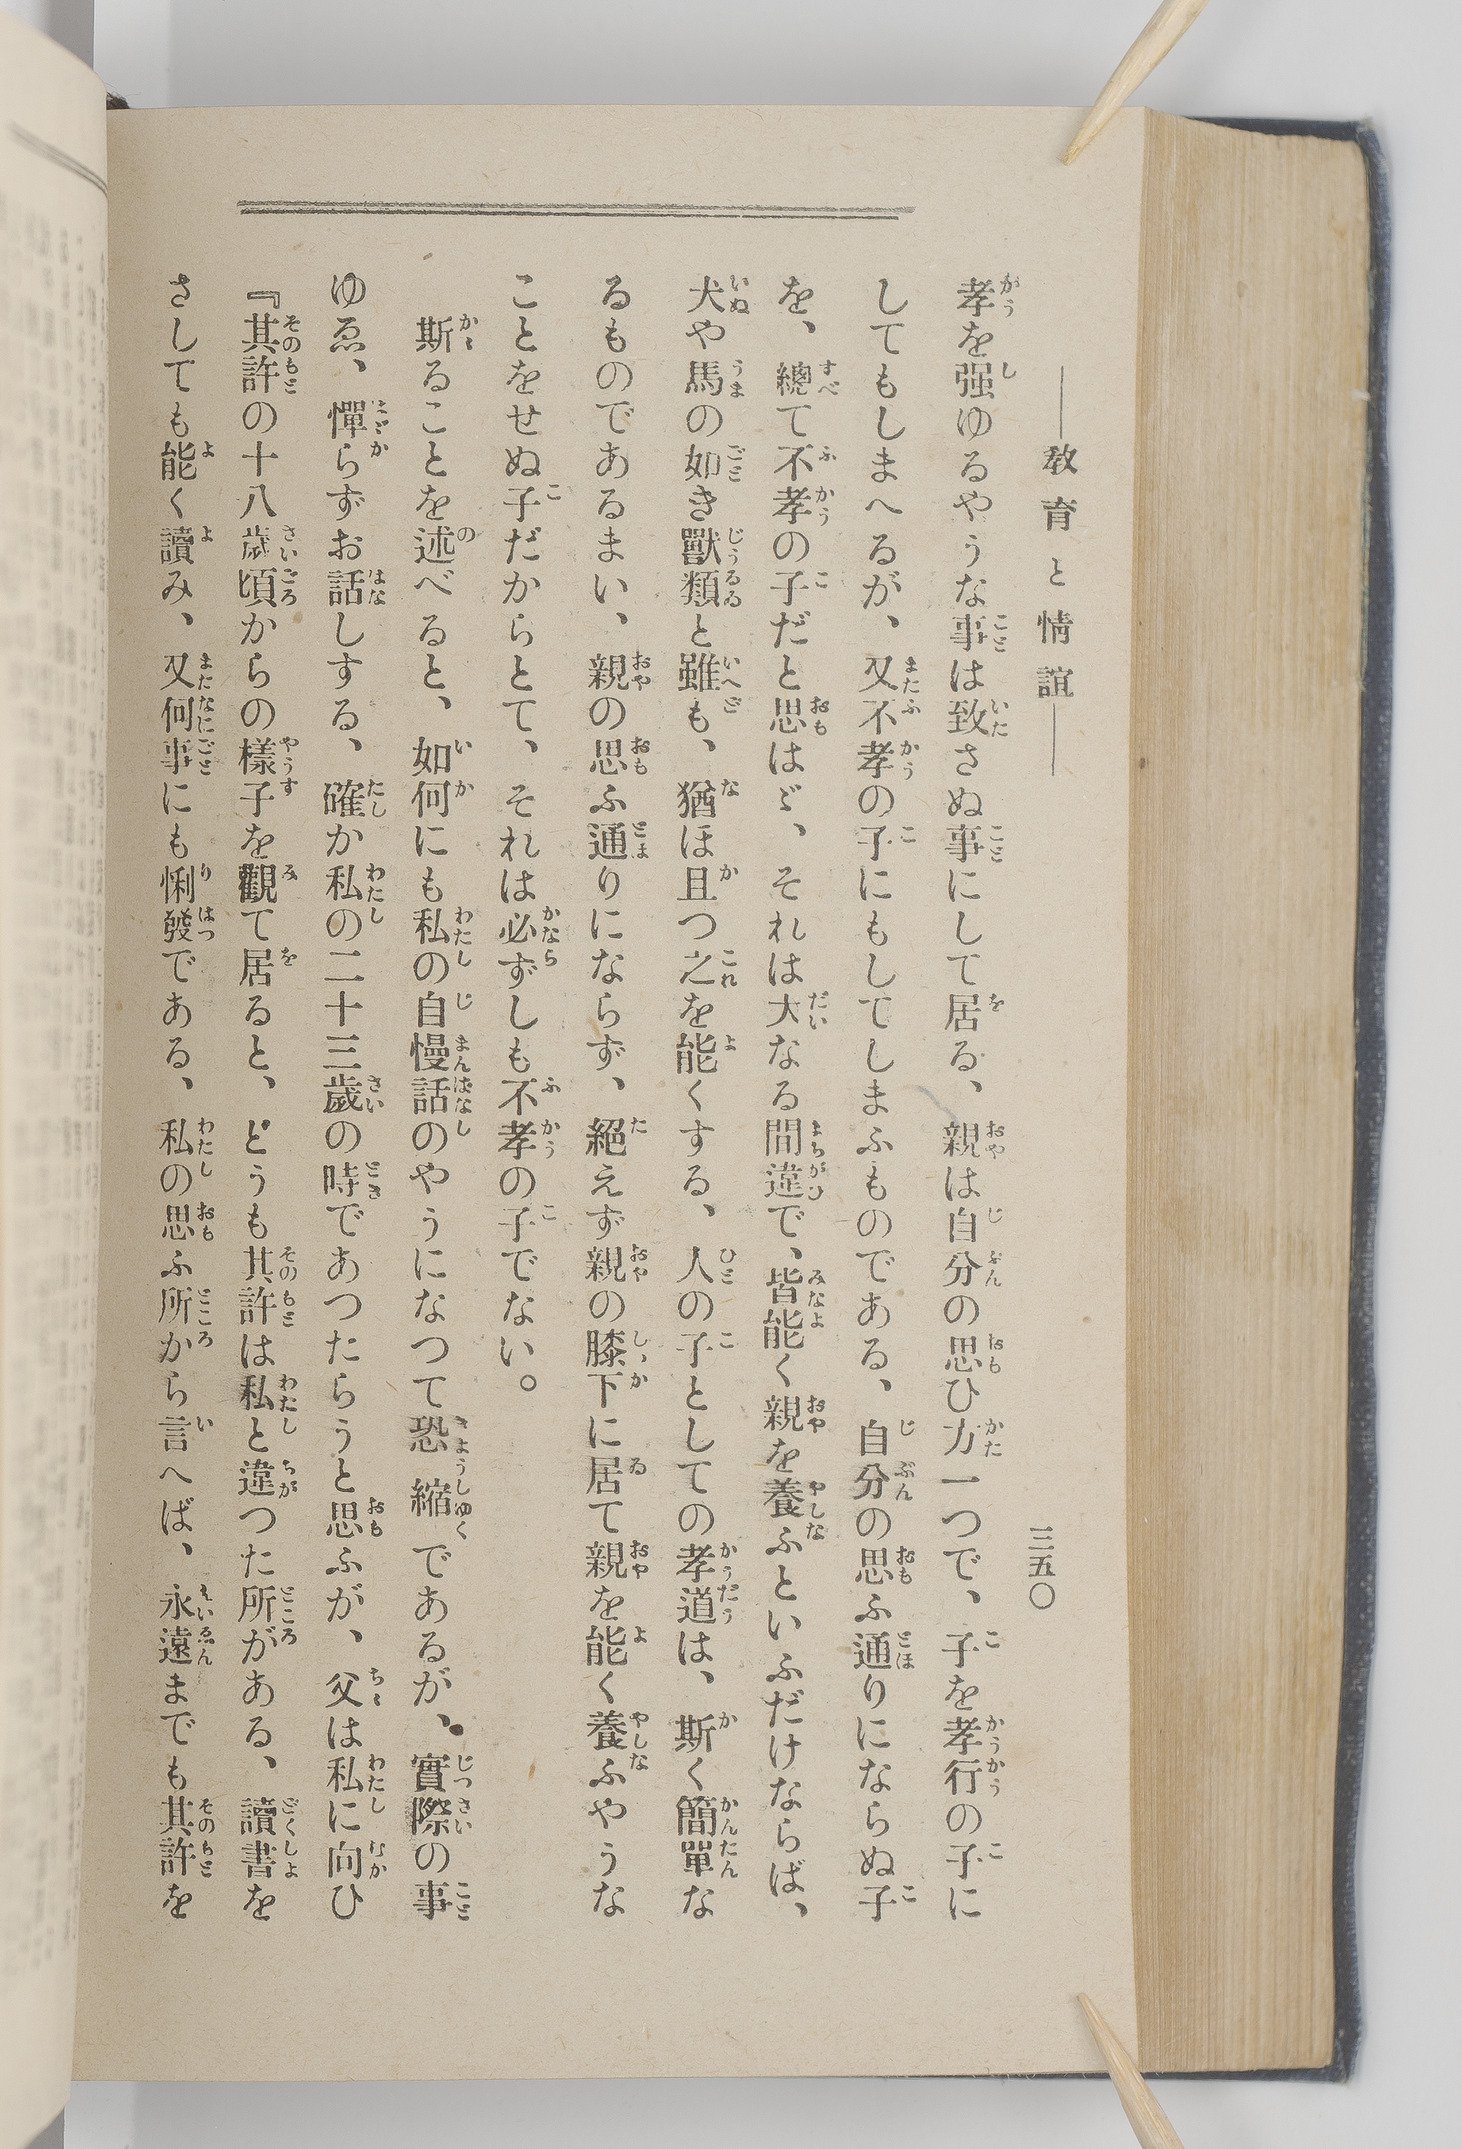 ――教育と情誼――
三五〇
孝を强ゆるやうな事は致さぬ事にして居る、親は自分の思ひ方一つで、子を孝行の子に
してもしまへるが、又不孝の子にもしてしまふものである、自分の思ふ通りにならぬ子
を、總て不孝の子だと思はゞ、それは大なる間違で、皆能く親を養ふといふだけならば、
犬や馬の如き獸類と雖も、猶ほ且つ之を能くする、人の子としての孝道は、斯く簡單な
るものであるまい、親の思ふ通りにならず、絕えず親の膝下に居て親を能く養ふやうな
ことをせぬ子だからとて、それは必ずしも不孝の子でない。
斯ることを述べると、如何にも私の自慢話のやうになつて恐縮であるが、實際の事
ゆゑ、憚らずお話しする、確か私の二十三歲の時であつたらうと思ふが、父は私に向ひ
『其許の十八歲頃からの樣子を觀て居ると、どうも其許は私と違つた所がある、讀書を
さしても能く讀み、又何事にも悧發である、私の思ふ所から言へば、永遠までも其許を